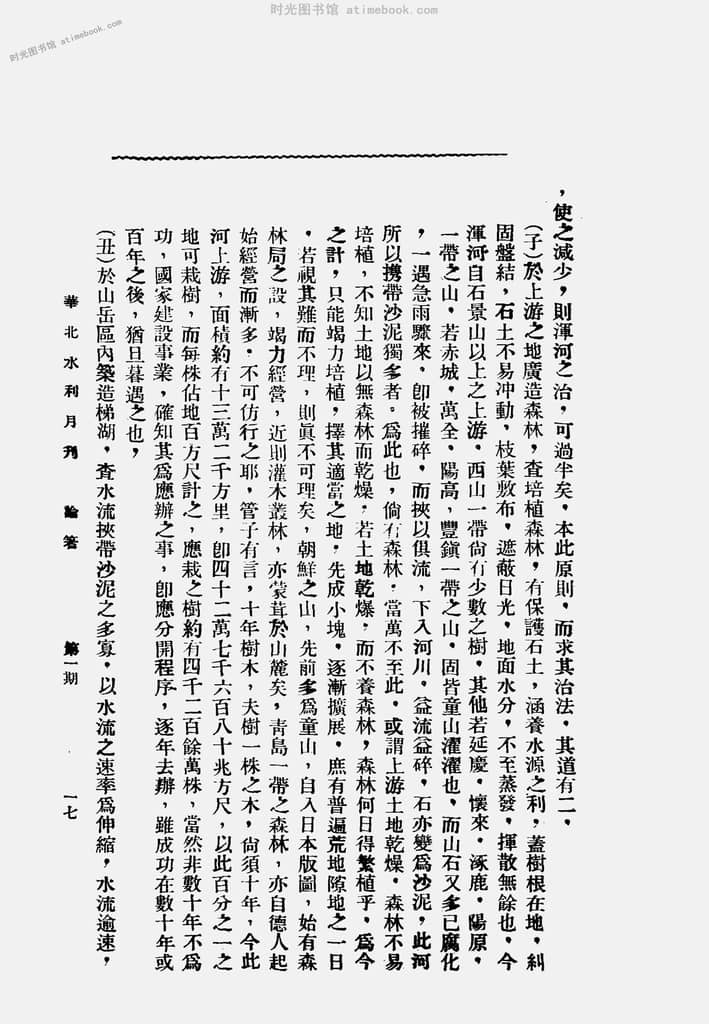 时光图书馆 atimebook.com
时光图书馆 atimebook.com
，使之減少，則渾河之治，可過半矣。本此原則，而求其治法，其道有二。
(子)於上游之地廣造森林，查培植森林，有保護石土，涵養水源之利，蓋樹根在地，糾
固盤結，石土不易冲動，枝葉敷布，遮蔽日光，地面水分，不至蒸發，揮散無餘也，今
渾河自石景山以上之上游，西山一帶尙有少數之樹，其他若延慶，懷來，涿鹿，陽原，
一帶之山，若赤城，萬全，陽高，豐鎭一帶之山，固皆童山濯濯也，而山石又多已腐化
，一遇急雨驟來，卽被摧碎，而挾以俱流，下入河川，益流益碎，石亦變爲沙泥，此河
所以携帶沙泥獨多者。爲此也，倘有森林，當萬不至此，或謂上游土地乾燥，森林不易
培植，不知土地以無森林而乾燥，若土地乾爆，而不養森林，森林何日得繁植乎，爲今
之計，只能竭力培植，擇其適當之地，先成小塊，逐漸擴展，庶有普遍荒地隙地之一日
，若視其難而不理，則眞不可理矣，朝鮮之山，先前多爲童山，自入日本版圖，始有森
林局之設，竭力經營，近則灌木叢林，亦蒙茸於山麓矣，靑島一帶之森林，亦自德人起
始經營而漸多，不可仿行之耶，管子有言，十年樹木，夫樹一株之木，尙須十年，今此
河上游，面積約有十三萬二千方里，卽四十二萬七千六百八十兆方尺，以此百分之一之
地可栽樹，而每株佔地百方尺計之，應栽之樹約有四千二百餘萬株，當然非數十年不爲
功，國家建設事業，確知其爲應辦之事，卽應分開程序，逐年去辦，雖成功在數十年或
百年之後，猶旦暮遇之也，
(丑)於山岳區內築造梯湖，査水流挾帶沙泥之多寡，以水流之速率爲伸縮，水流逾速，
華北水利月刋　論著　第一期　一七